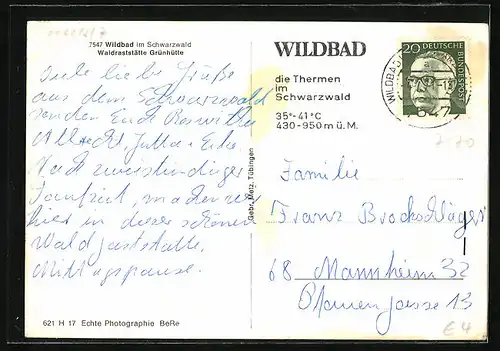 7547 Wildbad im Schwarzwald
Waldraststätte Grünhütte
Viele liebe Grüße
aus dem Schwarzwald
senden Euch Roswitha
Albrecht, Jutta u. Erke.
Nach zweistündiger
machen wir
hier in dieser schönen
Waldgaststätte
Mittagspause.
621 H 17 Echte Photographie BeRe
Gebr. Metz, Tübingen
WILDBAD
die Thermen
im
Schwarzwald
35°-41°C
430-950 m ü. M.
20 DEUTSCHE BUNDESPOST
WILDBAD
7547
Familie
Franz Brockschläger
68 Mannheim 32
13
€ 4